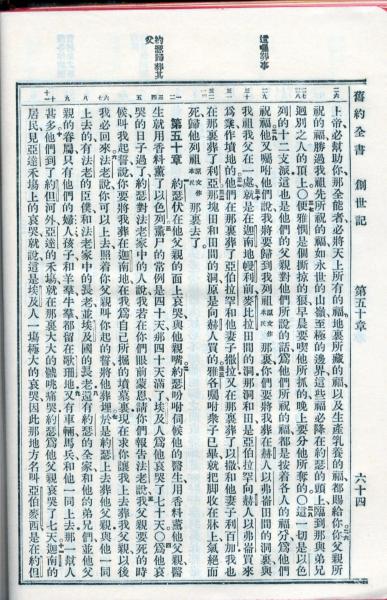 舊約全書 創世記 第五十章 六十四
上帝必幫助你那全能者必將天上所有的福地裏所藏的福以及生產乳養的福都賜給你你父親所
祝的福勝過我祖先所祝的福如永世的山嶺至極的邊界這些福必降在約瑟的頭上臨到那與弟兄
迥別之人的頂上○便雅憫是個撕掠的狼早晨要喫他所抓的晚上要分他所奪的○這一切是以色
列的十二支派這也是他們的父親對他們所說的話爲他們所祝的福都是按着各人的福分爲他們
遺囑葬事
祝福他又囑咐他們說我將要歸到我列祖原文作本民那裏你們要將我葬在赫人以弗崙田間的洞裏與
我祖我父在一處就是在迦南地幔利前麥比拉田間的洞那洞和田是亞伯拉罕向赫人以弗崙買來
爲業作墳地的他們在那裏葬了亞伯拉罕和他妻子撒拉又在那裏葬了以撒和他妻子利百加我也
在那裏葬了利亞那塊田和田間的洞原是向赫人買的雅各囑咐衆子已畢就把脚收在牀上氣絕而
死歸他列祖原文作本民那裏去了
第五十章 約瑟伏在他父親的面上哀哭與他親嘴約瑟吩咐伺候他的醫生用香料薰他父親醫
生就用香料薰了以色列薰尸的常例是四十天那四十天滿了埃及人爲他哀哭了七十天○爲他哀
約瑟歸葬其父
哭的日子過了約瑟對法老家中的人說我若在你們眼前蒙恩請你們報告法老說我父親要死的時
候叫我起誓說你要將我葬在迦南地在我爲自己所掘的墳墓裏現在求你讓我上去葬我父親以後
我必回來法老說你可以上去照着你父親叫你起的誓將他葬埋於是約瑟上去葬他父親與他一同
上去的有法老的臣僕和法老家中的長老並埃及國的長老還有約瑟的全家和他的弟兄們並他父
親的眷屬只有他們的婦人孩子和羊羣牛羣都留在歌珊地又有車輛馬兵和他一同上去那一幫人
甚多他們到了約但河外亞達的禾場就在那裏大大的號咷痛哭約瑟爲他父親哀哭了七天迦南的
居民見亞達禾場上的哀哭就說這是埃及人一場極大的哀哭因此那地方名叫亞伯麥西是在約但